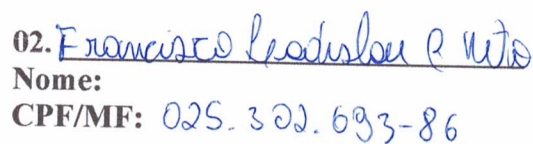 02. Francisco Leadislau P Neto
Nome:
CPF/MF: 025.302.693-86